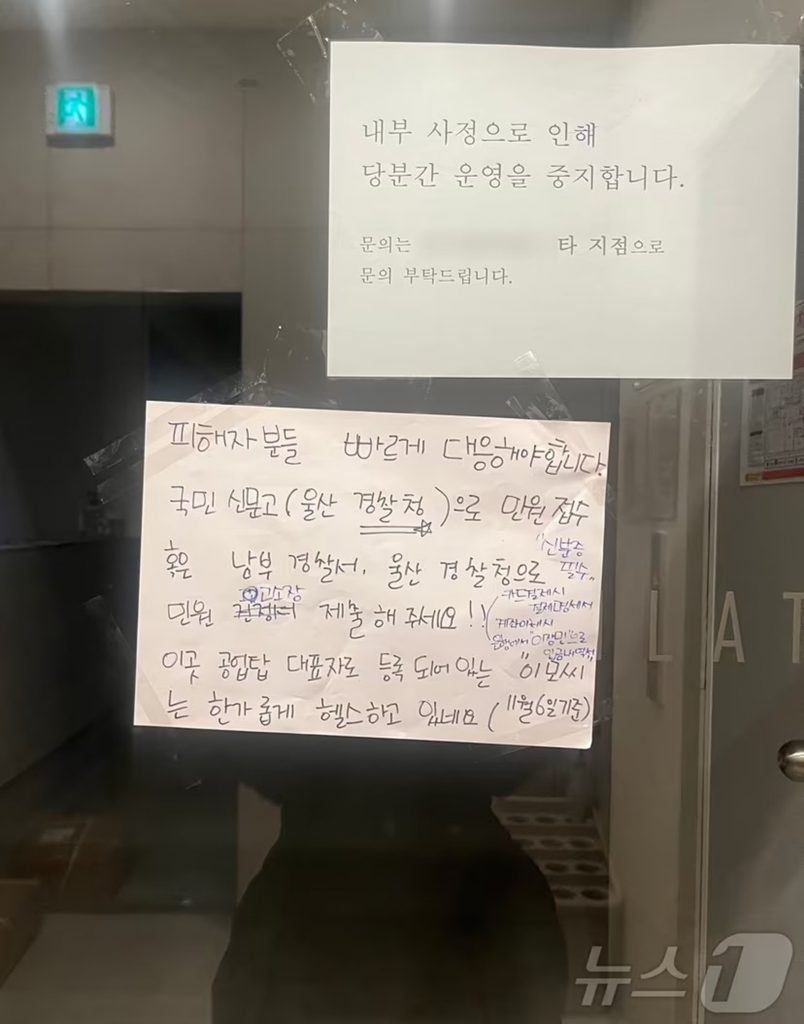 내부 사정으로 인해
당분간 운영을 중지합니다.
문의는 타 지점으로
문의 부탁드립니다.
피해자분들 빠르게 대응해야합니다.
국민 신문고(울산 경찰청)으로 민원 접수
혹은 남부 경찰서, 울산 경찰청으로 "신분증 필수"
민원 고소장 제출 해 주세요!! (카드결제시
결제내역서
계좌이체시
"이장민"으로
입금내역서)
이곳 공업탑 대표자로 등록 되어 있는 "이모씨"
는 한가롭게 헬스하고 있네요 (11월 6일 기준)
LAT
뉴스1